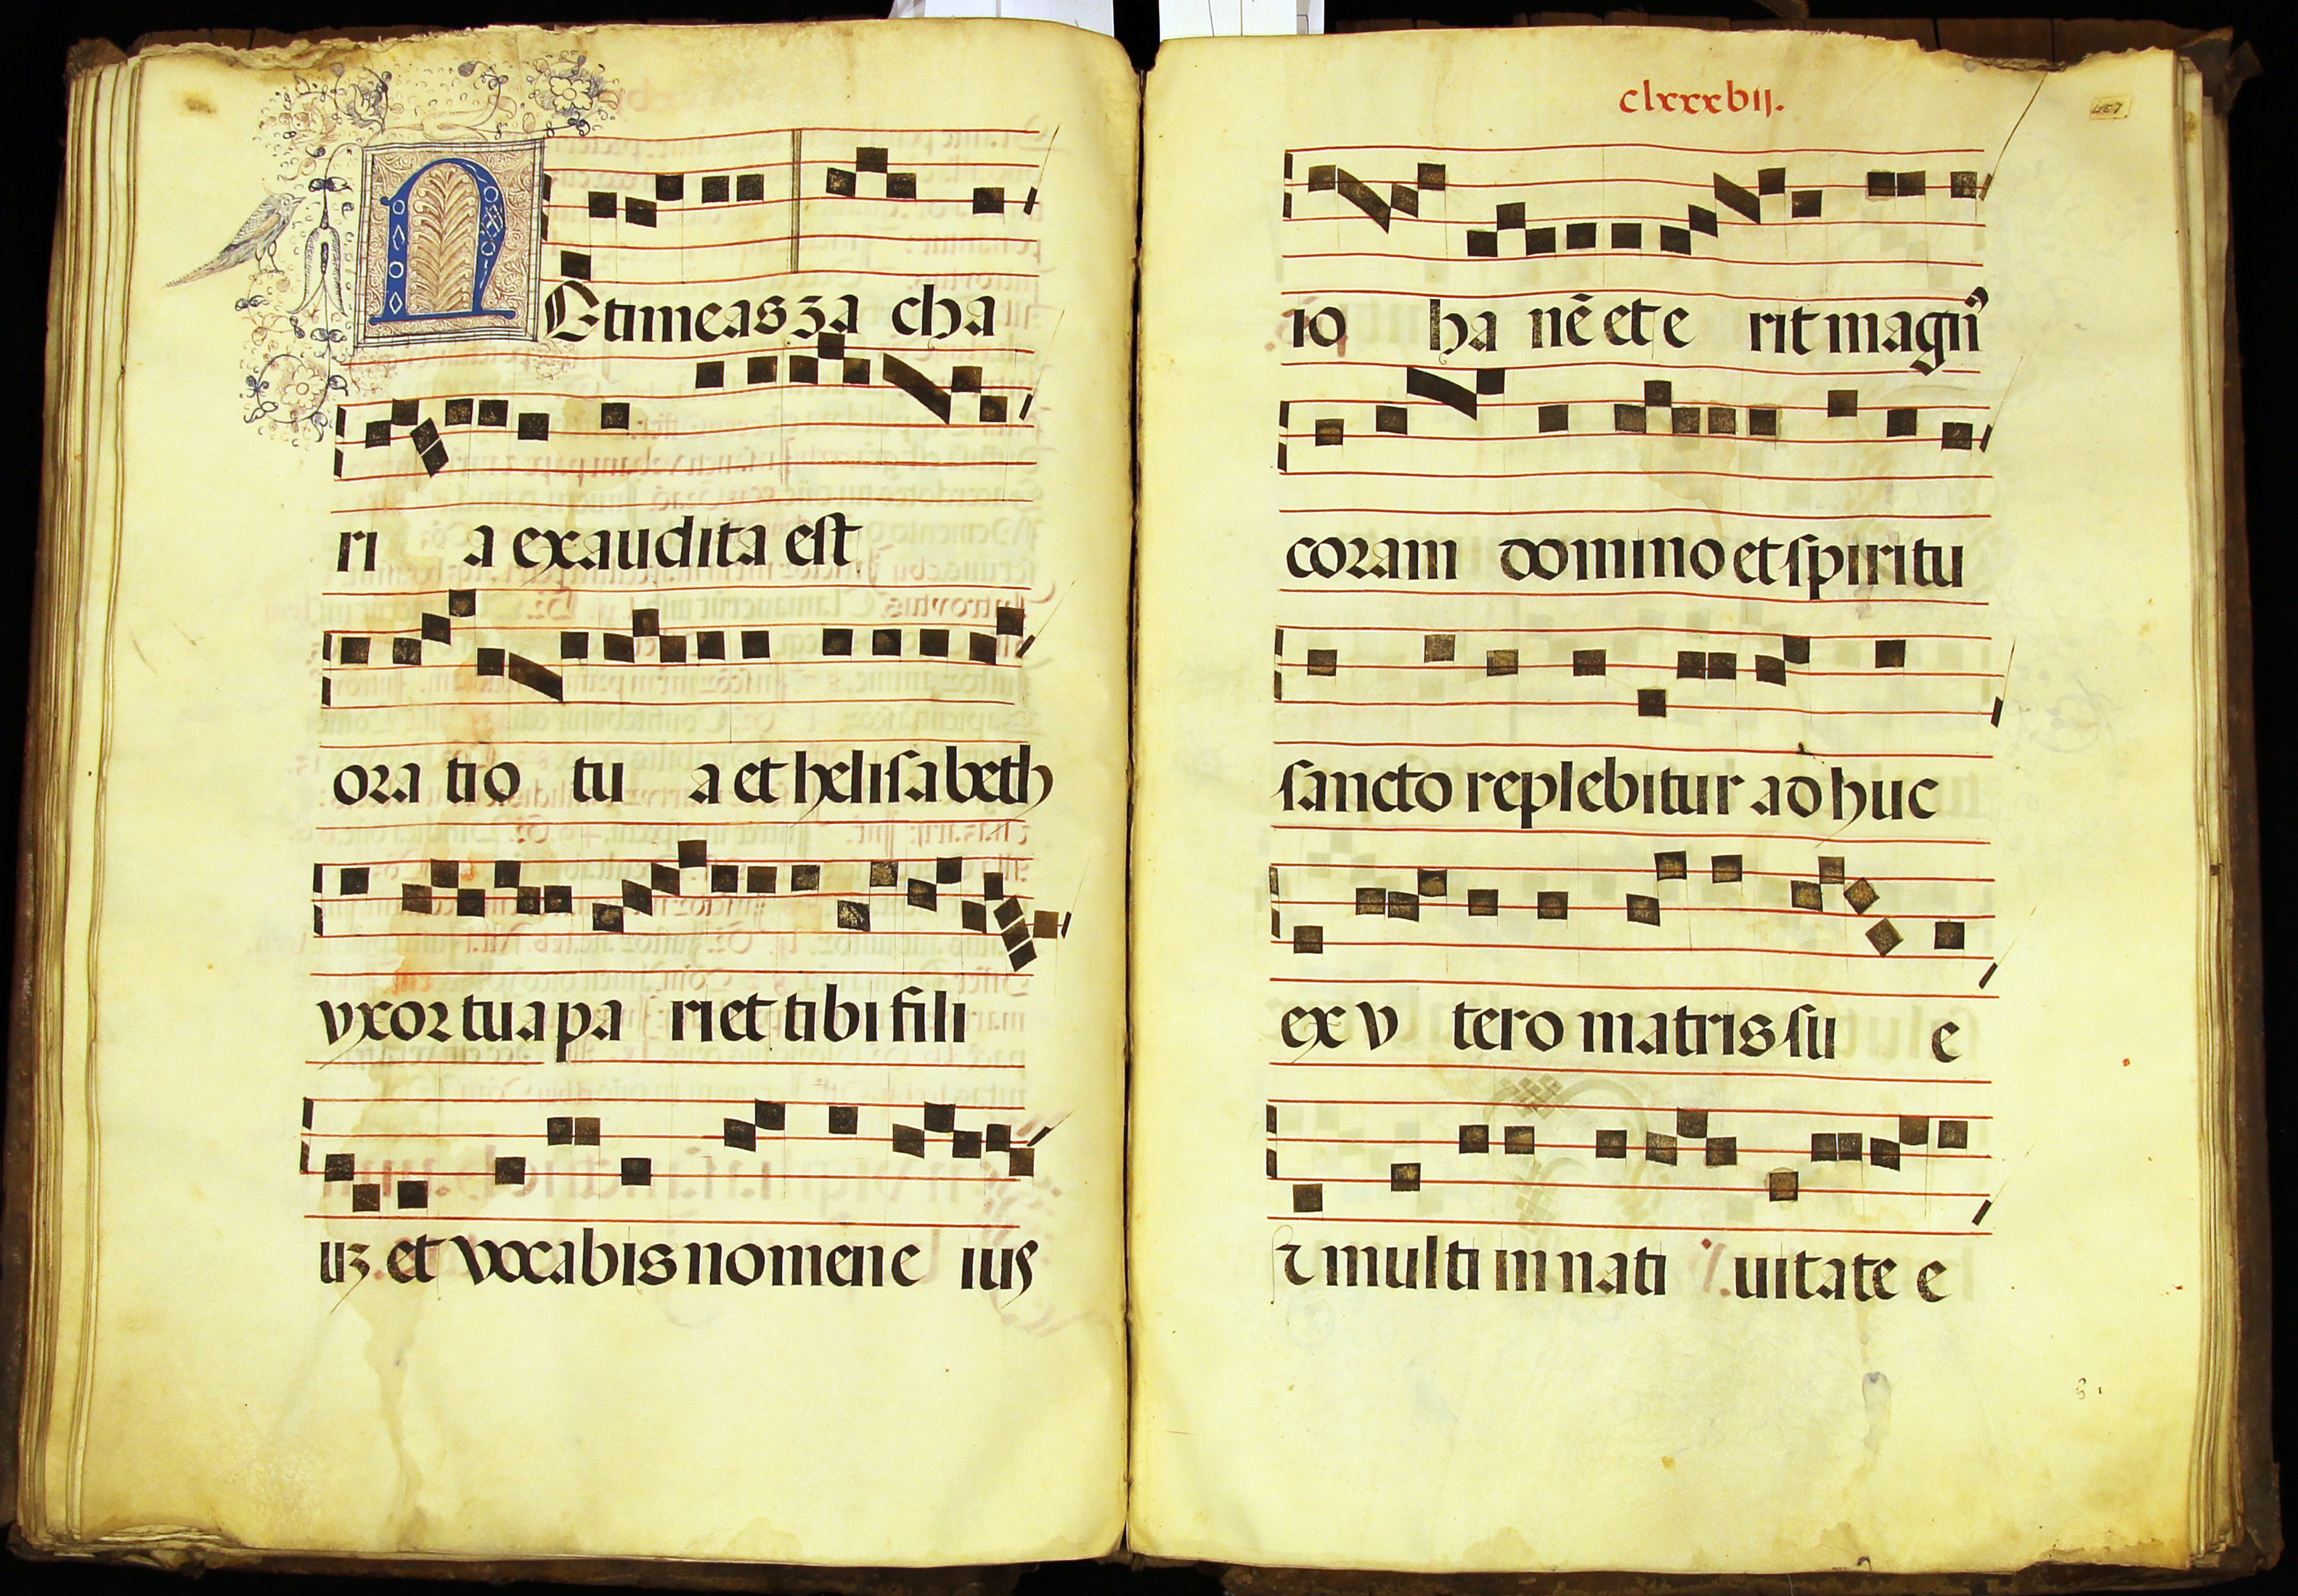 NEtimeas za cha
ri a exaudita est
ora tio tu a et helisabeth
vxor tua pa riet tibi fili
uz et vocabis nomen e ius
clxxxvij.
io ha nē et e rit magnꝰ
coram domino et spiritu
sancto replebitur ad huc
ex v tero matris su e
τ multi in nati uitate e